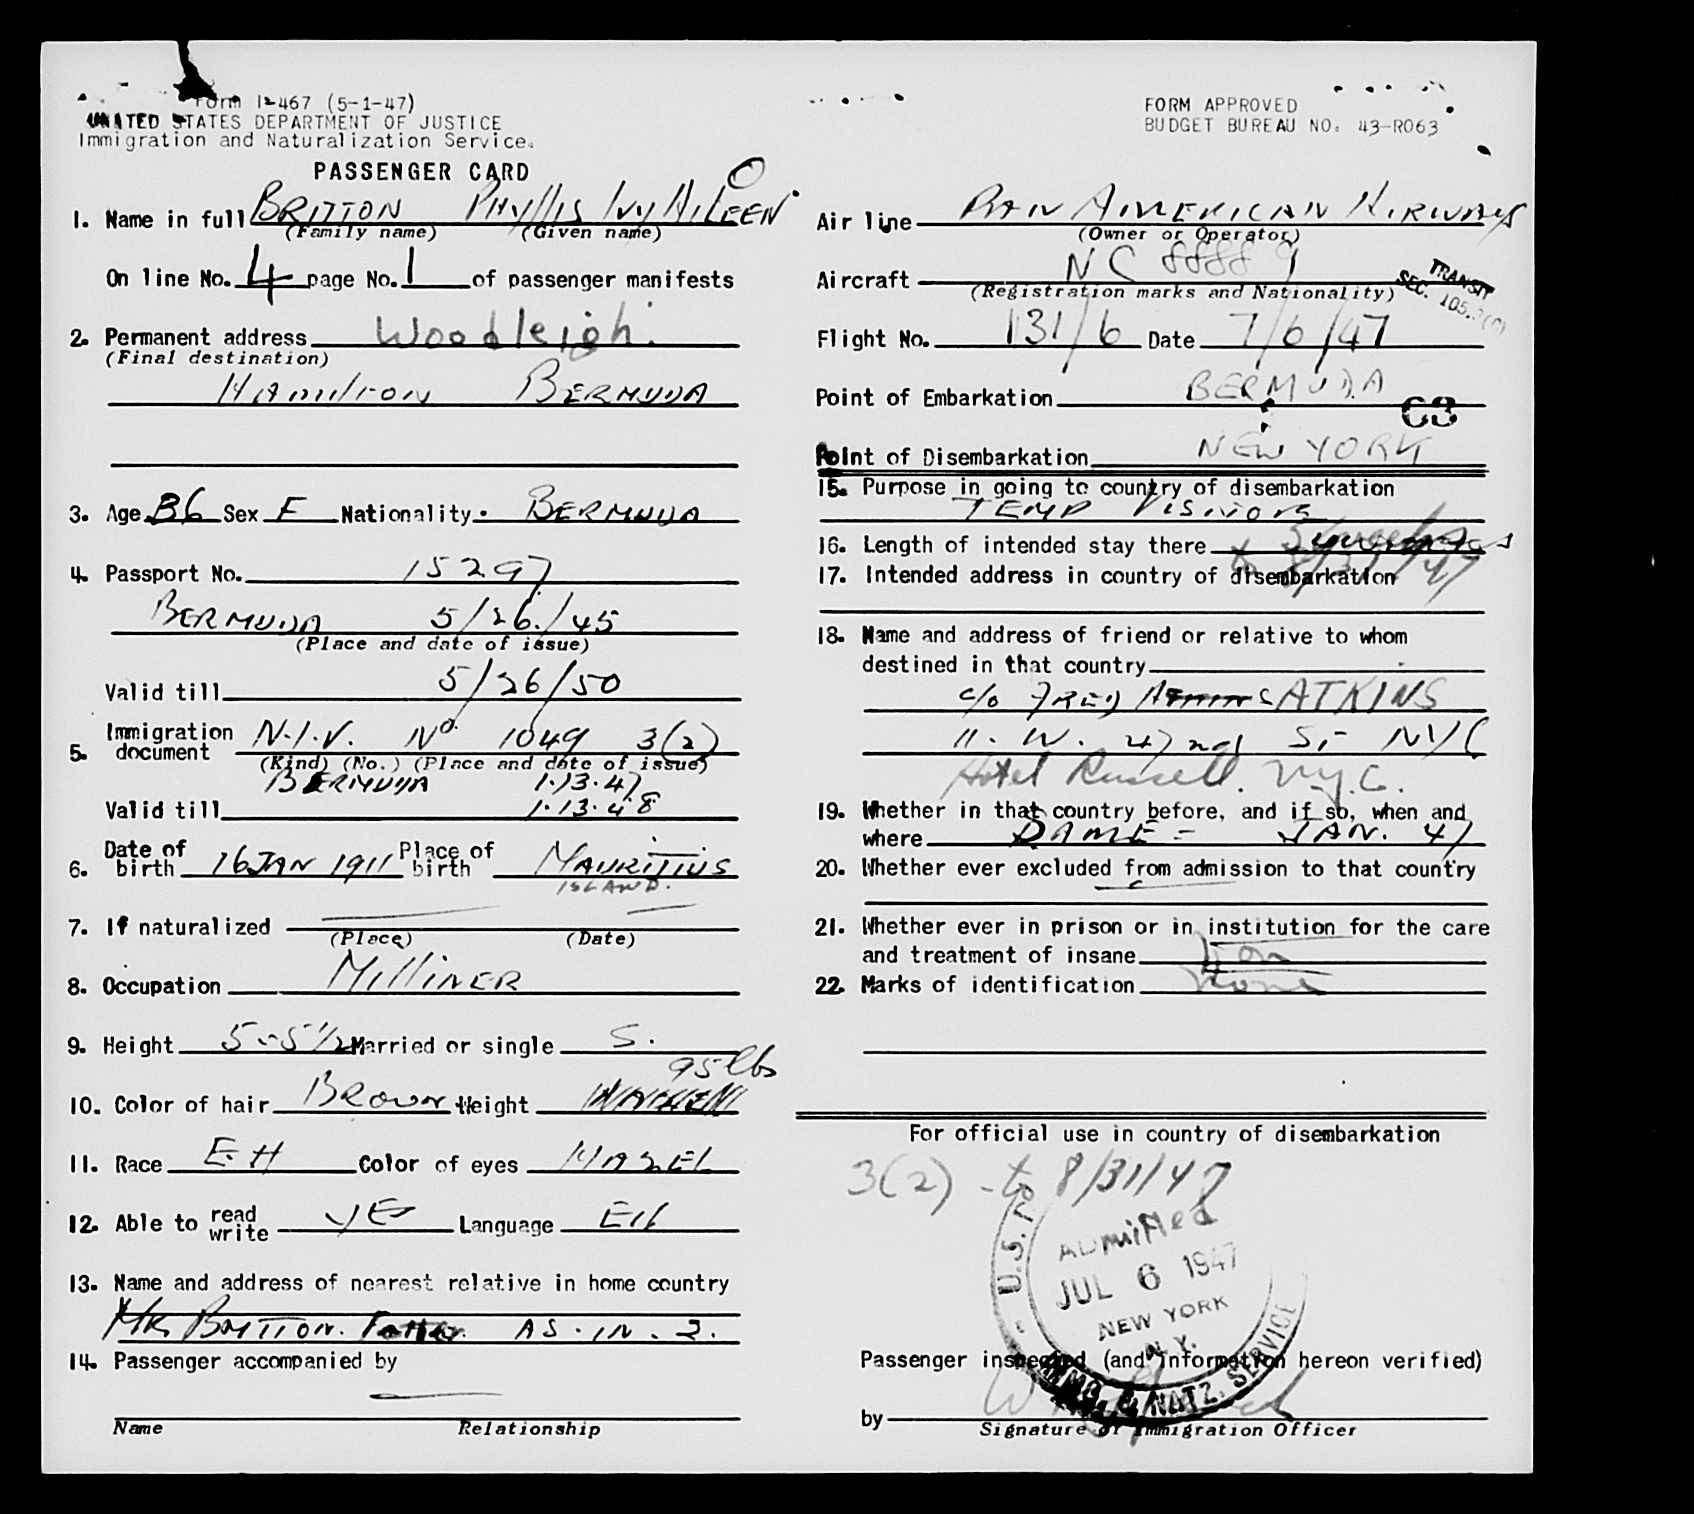 Form I-467 (5-1-47)
UNITED STATES DEPARTMENT OF JUSTICE
Immigration and Naturalization Service.
PASSENGER CARD
1. Name in full BRITTON PHYLLIS IVY AILEEN
(Family name) (Given name)
On line No. 4 page No. 1 of passenger manifests
2. Permanent address Woodleigh.
(Final destination)
HAMILTON BERMUDA
3. Age 36 Sex F Nationality. BERMUDA
4. Passport No. 15297
BERMUDA 5/26/45
(Place and date of issue)
Valid till 5/26/50
5. Immigration document N.I.V. No. 1049 3(2)
(Kind) (No.) (Place and date of issue)
BERMUDA 1.13.47
Valid till 1.13.48
6. Date of birth 16 JAN 1911 Place of birth MAURITIUS
ISLAND.
7. If naturalized
(Place) (Date)
8. Occupation MILLINER
9. Height 5-5 1/2 Married or single S.
95 lbs
10. Color of hair BROWN Weight
11. Race EH Color of eyes HAZEL
12. Able to read write YES Language EH
13. Name and address of nearest relative in home country
MR BRITTON. Father AS. IN. 2.
14. Passenger accompanied by
Name Relationship
FORM APPROVED
BUDGET BUREAU NO. 43-R063
Air line PAN AMERICAN AIRWAYS
(Owner or Operator)
Aircraft NC 88889
(Registration marks and Nationality)
TRANSIT
SEC. 105.
Flight No. 131/6 Date 7/6/47
Point of Embarkation BERMUDA
63
Point of Disembarkation NEW YORK
15. Purpose in going to country of disembarkation
TEMP VISITORS
16. Length of intended stay there
17. Intended address in country of disembarkation
8/31/47
18. Name and address of friend or relative to whom
destined in that country
c/o FRED ATKINS
11. W. 42nd ST NYC
Hotel Russell. N.Y.C.
19. Whether in that country before, and if so, when and
where SAME - JAN. 47
20. Whether ever excluded from admission to that country
21. Whether ever in prison or in institution for the care
and treatment of insane
22. Marks of identification None
For official use in country of disembarkation
3(2) - to 8/31/47
U.S. IMMG. & NATZ. SERVICE
ADMITTED
JUL 6 1947
NEW YORK
N.Y.
Passenger inspected (and information hereon verified)
by
Signature of Immigration Officer